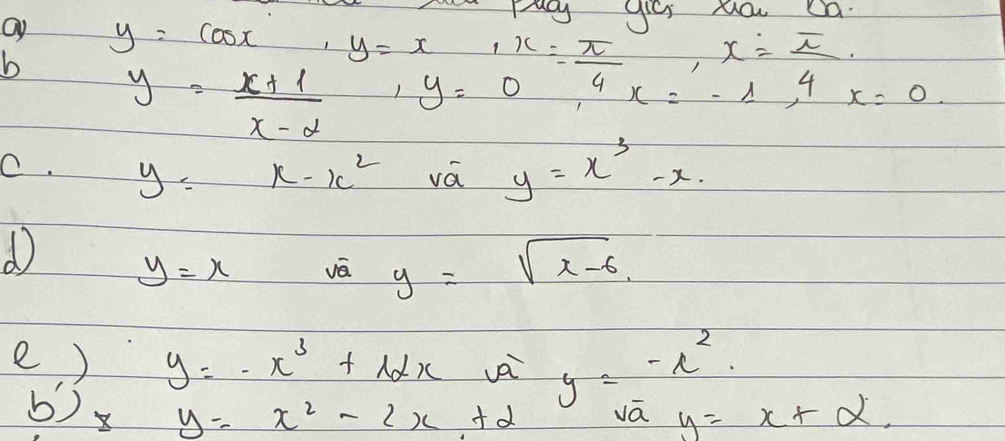 giới
a) y = cosx , y = x , x = -π/4 , x = π/4 .
b y = (x+1)/(x-2) , y = 0 , x = -1 , x = 0.
c. y = x - x² và y = x³ - x.
d) y = x và y = √(x-6).
e) y = -x³ + 12x và y = -x².
b') y = x² - 2x + 2 và y = x + 2.